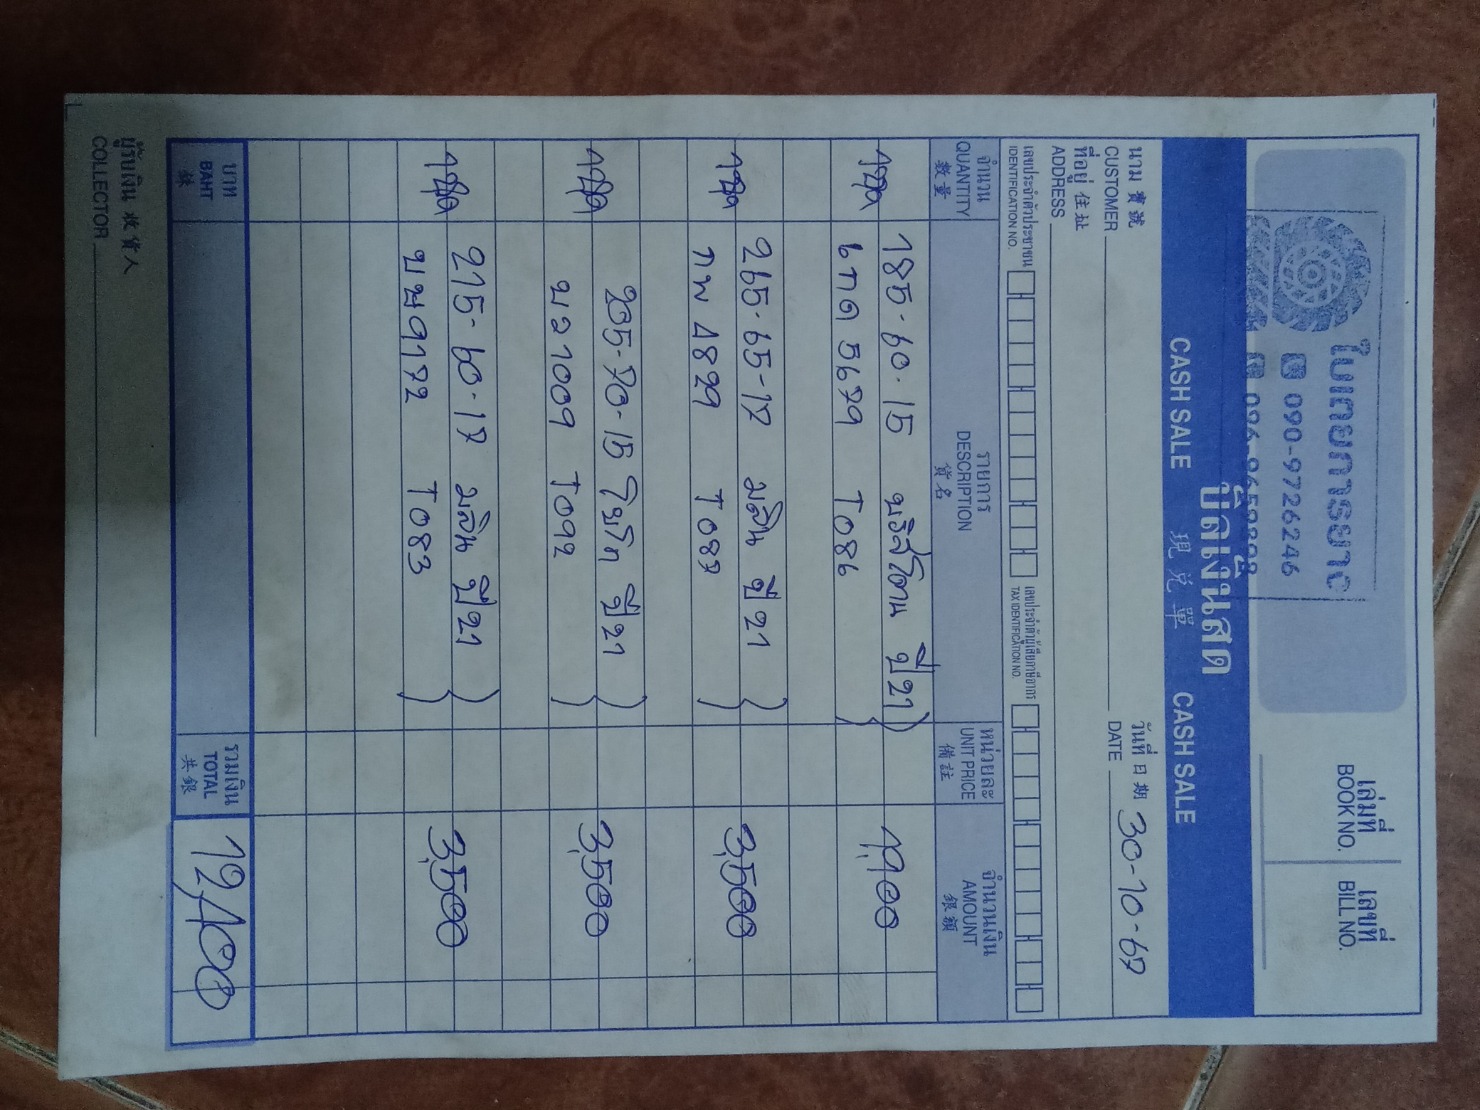 ใบเตยการยาง
090-9726246
เล่มที่
BOOK NO.
เลขที่
BILL NO.
บิลเงินสด
CASH SALE 現兌單 CASH SALE
นาม 寶號
CUSTOMER
วันที่ 日期
DATE 30-10-67
ที่อยู่ 住址
ADDRESS
เลขประจำตัวประชาชน
IDENTIFICATION NO.
เลขประจำตัวผู้เสียภาษีอากร
TAX IDENTIFICATION NO.
จำนวน
QUANTITY
數量
รายการ
DESCRIPTION
貨名
หน่วยละ
UNIT PRICE
備註
จำนวนเงิน
AMOUNT
銀額
1ชุด 185-60-15 บริสโตน ปี21 1,900
5679 T086
1ชุด 265-65-17 มิลิน ปี21 3,500
กพ 4829 T087
1ชุด 235-70-15 ปี21 3,500
1009 T092
1ชุด 215-60-17 มิลิน ปี21 3,500
T083
บาท
BAHT
銖
รวมเงิน
TOTAL
共銀
12,400
ผู้รับเงิน 收貨人
COLLECTOR